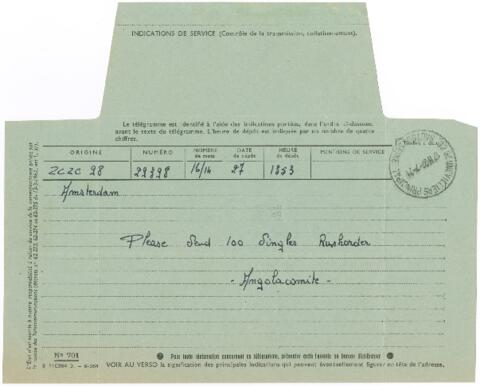 INDICATIONS DE SERVICE (Contrôle de la transmission, collationnement).
Le télégramme est identifié à l'aide des indications portées, dans l'ordre ci-dessous,
avant le texte du télégramme. L'heure de dépôt est indiquée par un nombre de quatre
chiffres.
ORIGINE NUMÉRO NOMBRE de mots DATE de dépôt HEURE de dépôt MENTIONS DE SERVICE
ZCZC 98 29398 16/14 27 1853
Amsterdam
Please Send 100 Singles Rushorder
- Angolacomite -
Nº 701
Pour toute réclamation concernant ce télégramme, présenter cette formule au bureau distributeur
VOIR AU VERSO la signification des principales indications qui peuvent éventuellement figurer en tête de l'adresse.